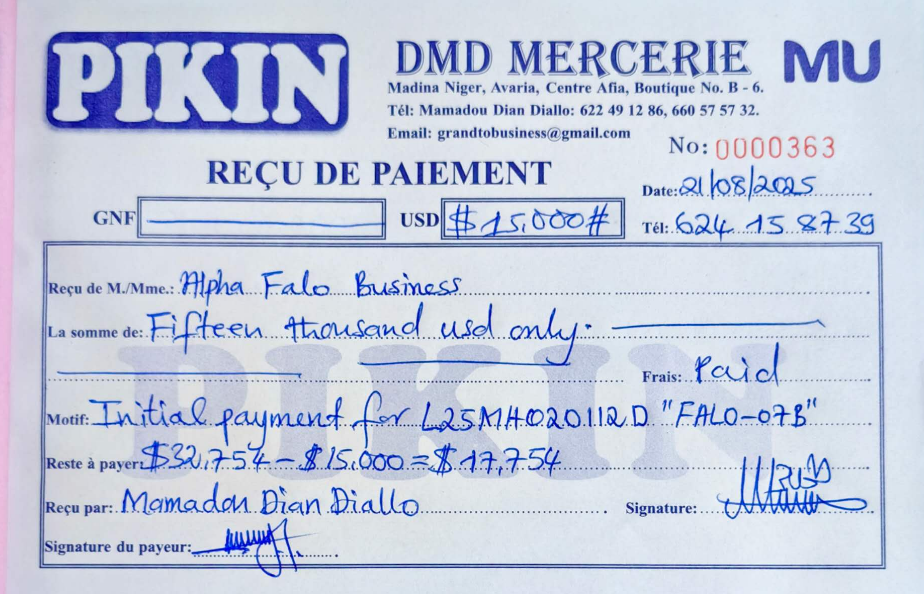 PIKIN
DMD MERCERIE
MU
Madina Niger, Avaria, Centre Afia, Boutique No. B - 6.
Tél: Mamadou Dian Diallo: 622 49 12 86, 660 57 57 32.
Email: grandtobusiness@gmail.com
No: 0000363
REÇU DE PAIEMENT
Date: 21/08/2025
GNF USD $15,000# Tél: 624 15 87 39
Reçu de M./Mme.: Alpha Falo Business
La somme de: Fifteen thousand usd only.
Frais: Paid
Motif: Initial payment for L25MH020112D "FALO-07B"
Reste à payer: $32,754 - $15,000 = $17,754
Reçu par: Mamadou Dian Diallo Signature:
Signature du payeur:
PIKIN